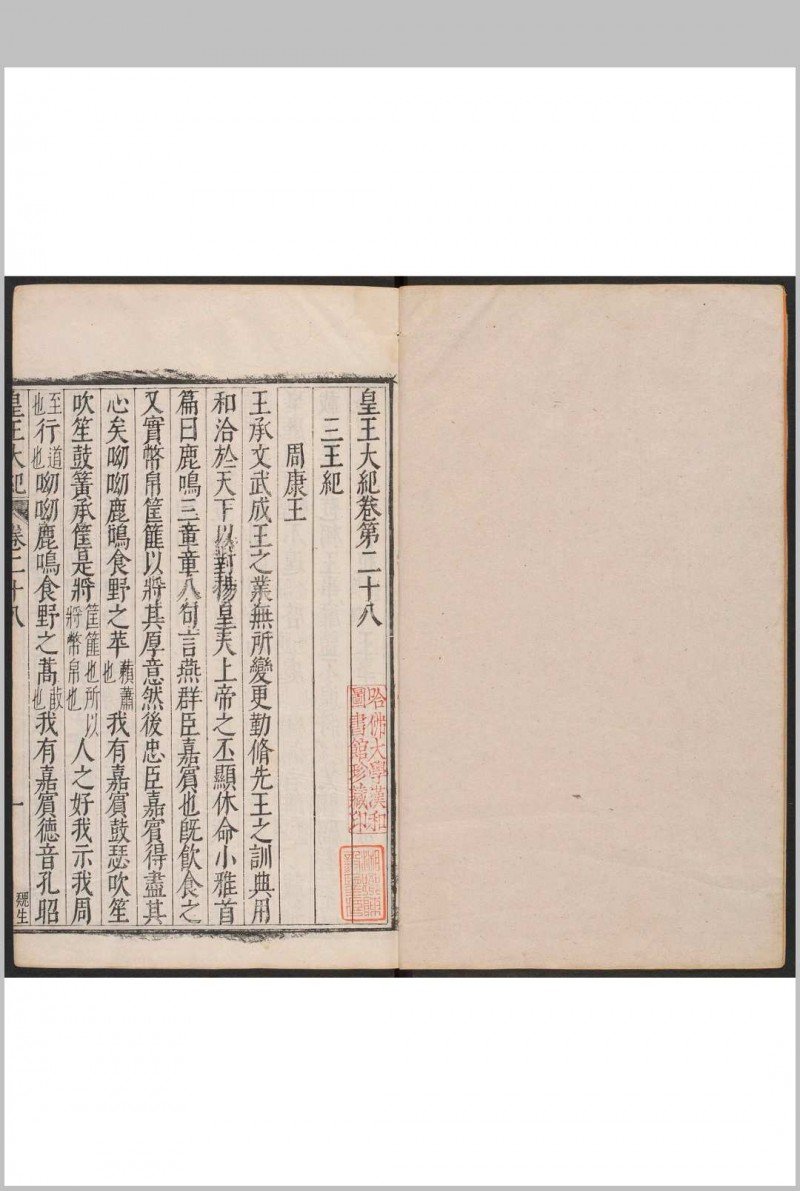 皇王大紀卷第二十八
三王紀
周康王
王承文武成王之業無所變更勤脩先王之訓典用
和洽於天下以對揚皇天上帝之丕顯休命小雅首
篇曰鹿鳴三章章八句言燕群臣嘉賓也旣飲食之
又實幣帛筐篚以將其厚意然後忠臣嘉賓得盡其
心矣呦呦鹿鳴食野之苹蘋蕭也我有嘉賓鼓瑟吹笙
吹笙鼓簧承筐是將筐篚也所以將幣帛也人之好我示我周
至也行道也呦呦鹿鳴食野之蒿菣也我有嘉賓德音孔昭
皇王大紀 卷二十八 一
哈佛大學漢和圖書館珍藏印